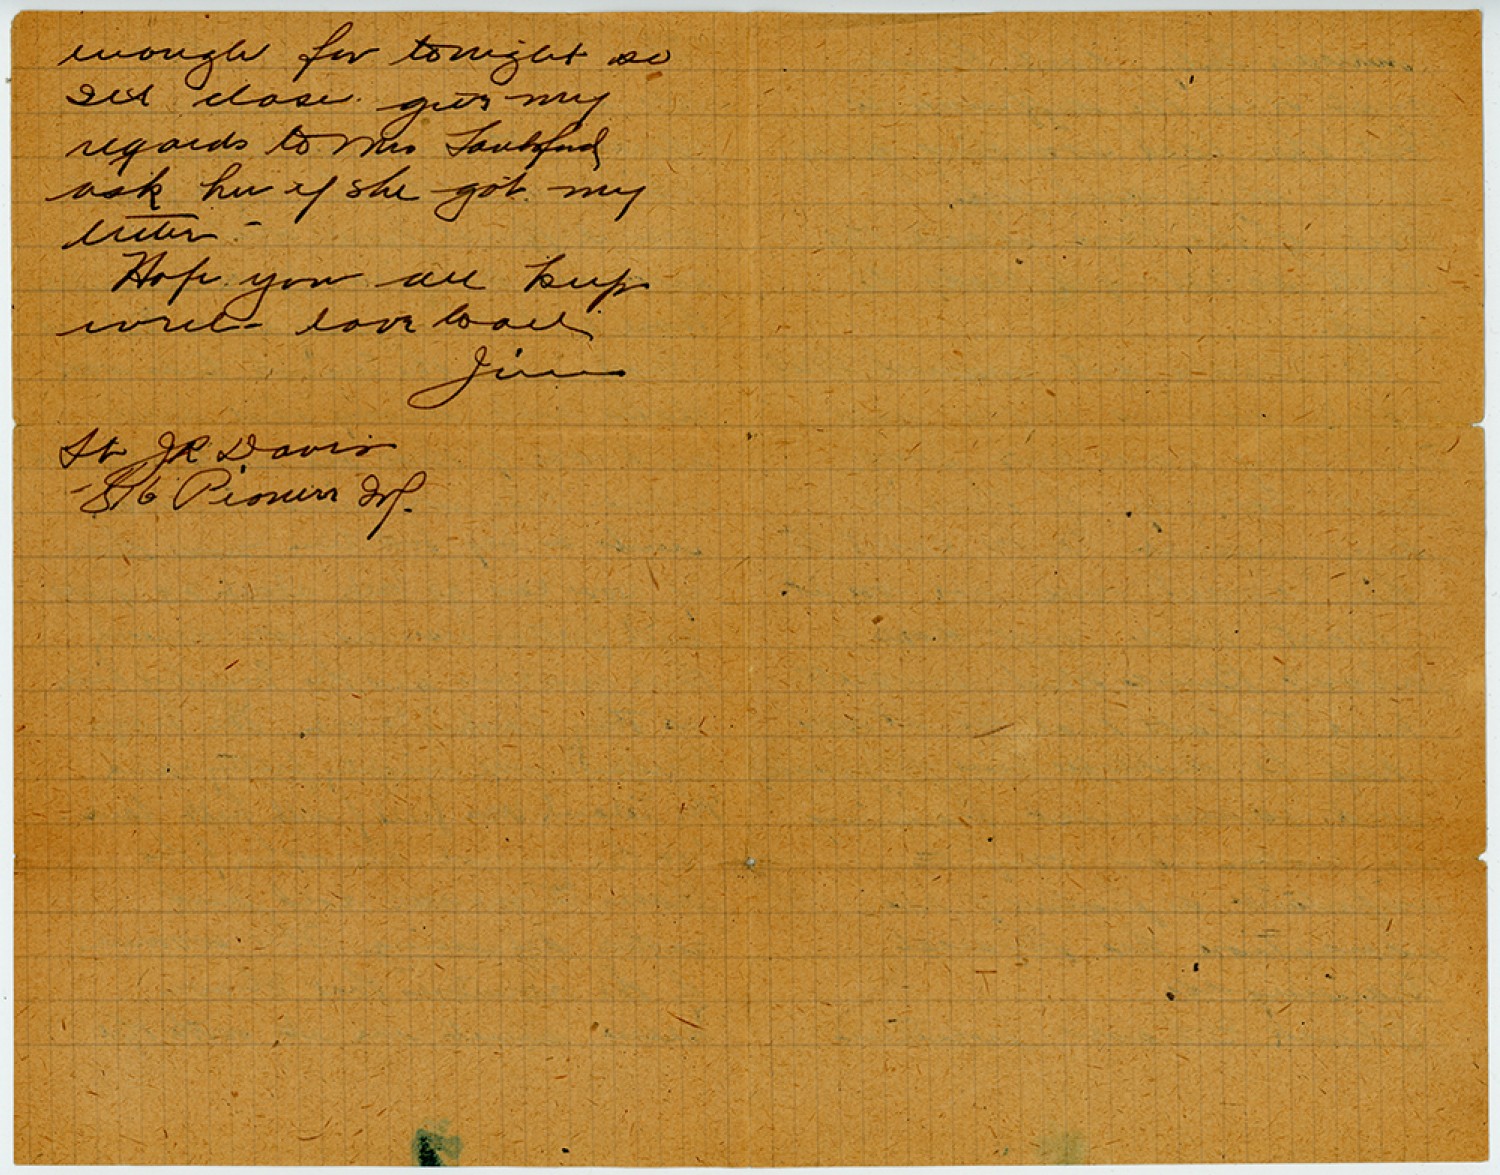 enough for tonight so
I'll close. give my
regards to Mrs
ask her if she got my
letter -
Hope you all keep
well - love to all
Jim
Lt JR Davis
816 Pioneer Inf.